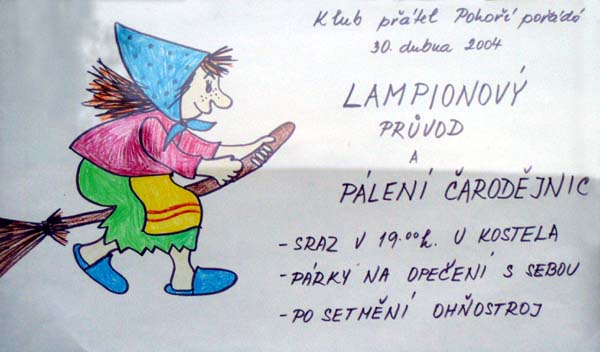 Klub přátel Pohoří pořádá
30. dubna 2004
LAMPIONOVÝ
PRŮVOD
A
PÁLENÍ ČARODĚJNIC
- SRAZ V 19.00h. U KOSTELA
- PÁRKY NA OPEČENÍ S SEBOU
- PO SETMĚNÍ OHŇOSTROJ